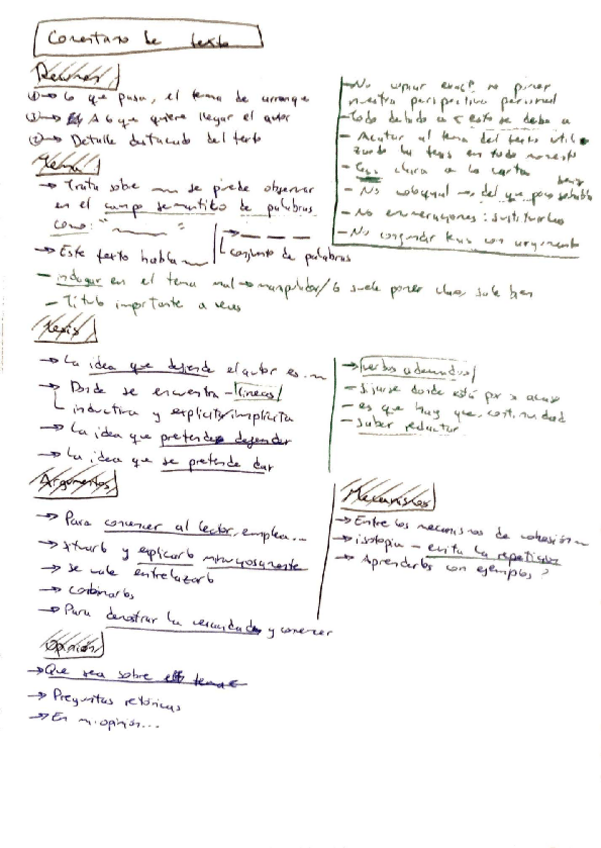 Comentario de texto
Resumen
① → lo que pasa, el tema de arranque
② → A lo que quiere llegar el autor
③ → Detalle destacado del texto
- No copiar exac? no poner
nuestra perspectiva personal
- Todo debido a < esto se debe a
- Acatar al tema del texto
la tesis en todo momento
- clara a la corta
- No coloquial → del que
- No enumeraciones: sustituirlas
- No confundir tesis con argumento
Tema
→ Trata sobre ~~ se puede observar
en el campo semántico de palabras
como: " ~~~ "
→ Este texto habla ~~
→ — — —
conjunto de palabras
- indagar en el tema mal → manipulador / lo suele poner claro, suele bien
- Título importante a veces
Tesis
→ La idea que defiende el autor es...
→ Donde se encuentra - líneas /
inductiva y explícita/implícita
→ La idea que pretende defender
→ La idea que se pretende dar
→ verbos adecuados /
- Fijarse donde está por si acaso
- es que hay que, continuidad
- saber redactar
Argumentos
→ Para convencer al lector, emplea...
→ situarlo y explicarlo minuciosamente
→ se vale entrelazarlo
→ combinarlos
→ Para demostrar la veracidad y convencer
Mecanismos
→ Entre los mecanismos de cohesión ~
→ isotopía - evita la repetición
→ Aprenderlos con ejemplos?
Opinión
→ Que sea sobre el tema
→ Preguntas retóricas
→ En mi opinión...